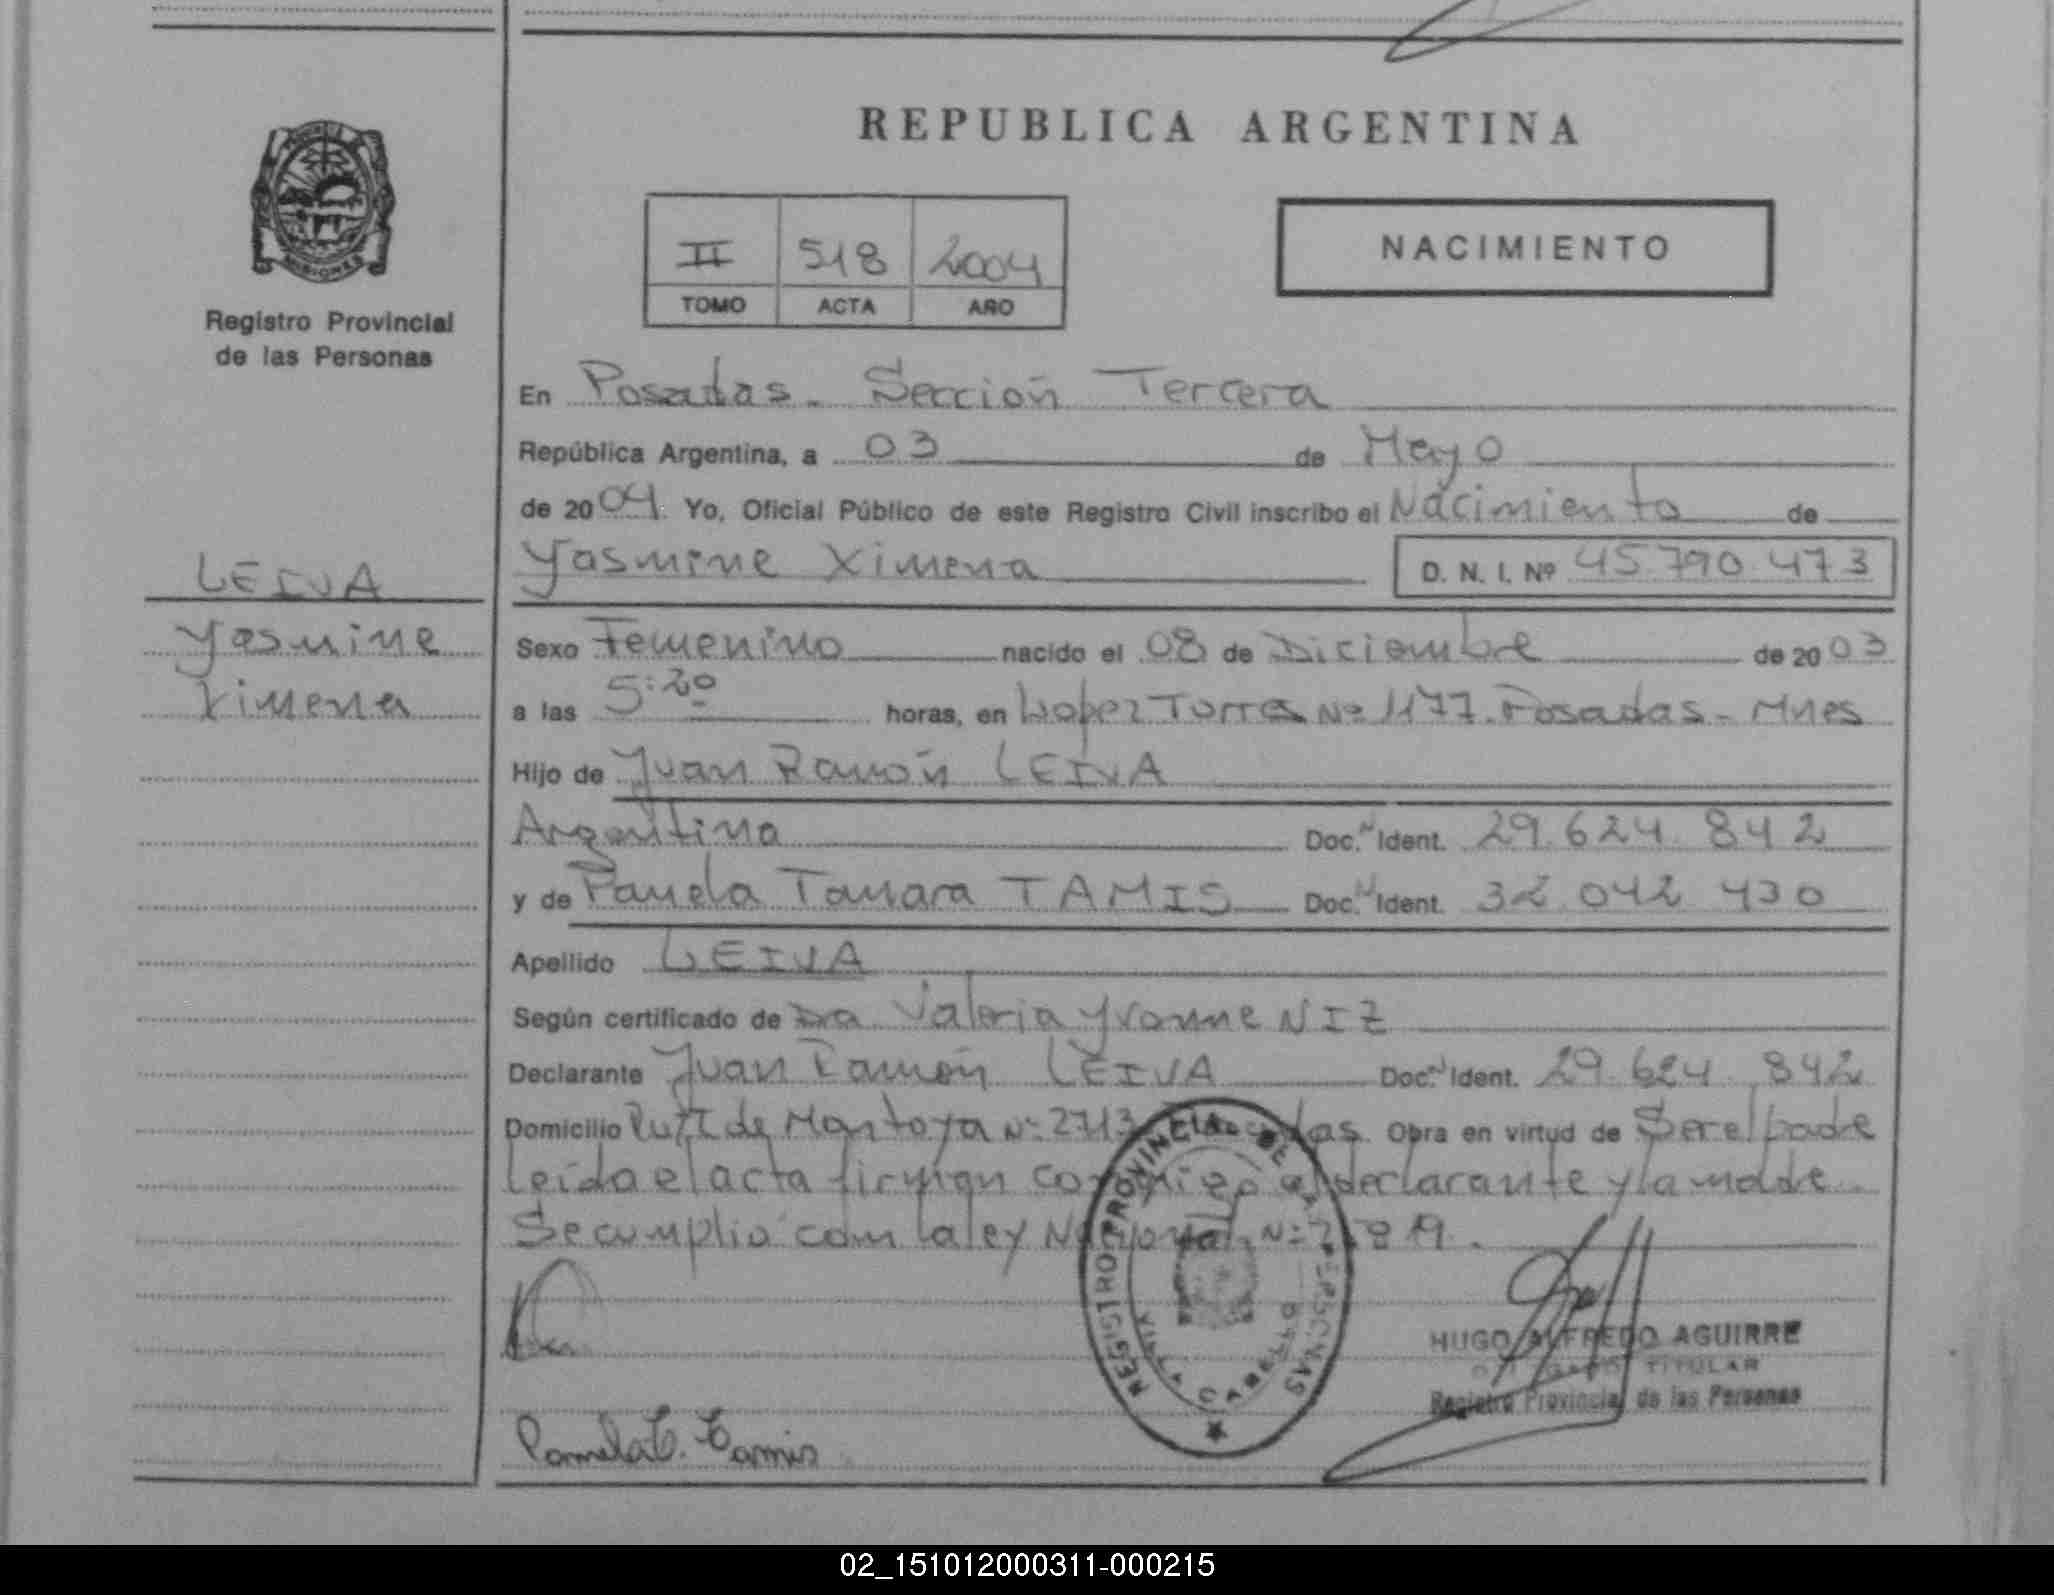 REPUBLICA ARGENTINA
MISIONES
Registro Provincial
de las Personas
II 518 2004
TOMO ACTA AÑO
NACIMIENTO
En Posadas - Sección Tercera
República Argentina, a 03 de Mayo
de 2004 Yo, Oficial Público de este Registro Civil inscribo el Nacimiento de
Yasmine Ximena D. N. I. Nº 45.790.473
LEIVA
Yasmine
Ximena
Sexo Femenino nacido el 08 de Diciembre de 2003
a las 5:20 horas, en Lopez Torres Nº 1177. Posadas - Mnes
Hijo de Juan Ramón LEIVA
Argentina Doc. N Ident. 29.624.842
y de Pamela Tamara TAMIS Doc. N Ident. 32.042.430
Apellido LEIVA
Según certificado de Dra Valeria Yvonne NIZ
Declarante Juan Ramón LEIVA Doc. N Ident. 29.624.842
Domicilio de Montoya Nº 2713 Obra en virtud de Ser el padre
Leída el acta firman conmigo el declarante y la madre
Se cumplio con la ley Nacional Nº
REGISTRO PROVINCIAL DE LAS PERSONAS
VILLA CABELLO
HUGO ALFREDO AGUIRRE
TITULAR
Registro Provincial de las Personas
Pamela T. Tamis
02_151012000311-000215